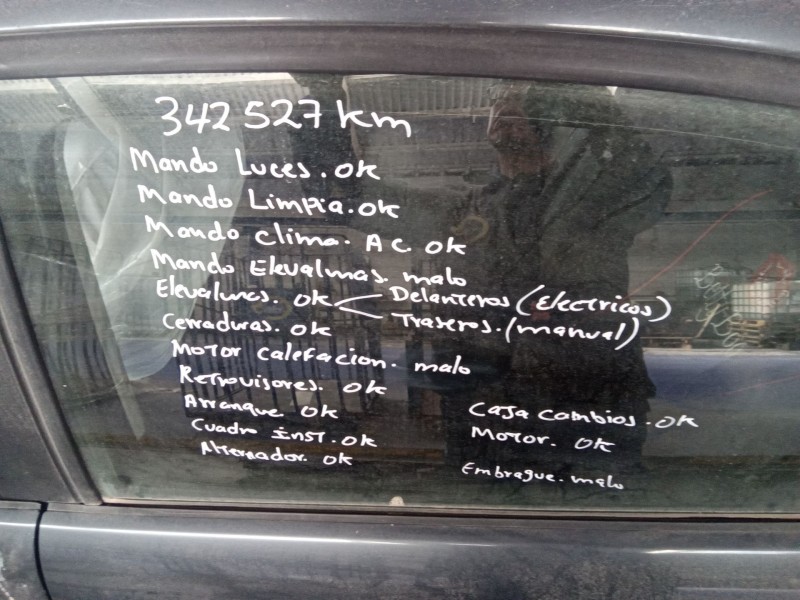 342 527 km
Mando Luces. ok
Mando Limpia. ok
Mando clima. A C. ok
Mando Elevalunas. malo
Elevalunas. ok < Delanteros (Electricos)
Traseros. (manual)
Cerraduras. ok
Motor calefacion. malo
Retrovisores. ok
Arranque ok
Cuadro inst. ok
Alternador. ok
Caja Cambios. ok
Motor. ok
Embrague. malo